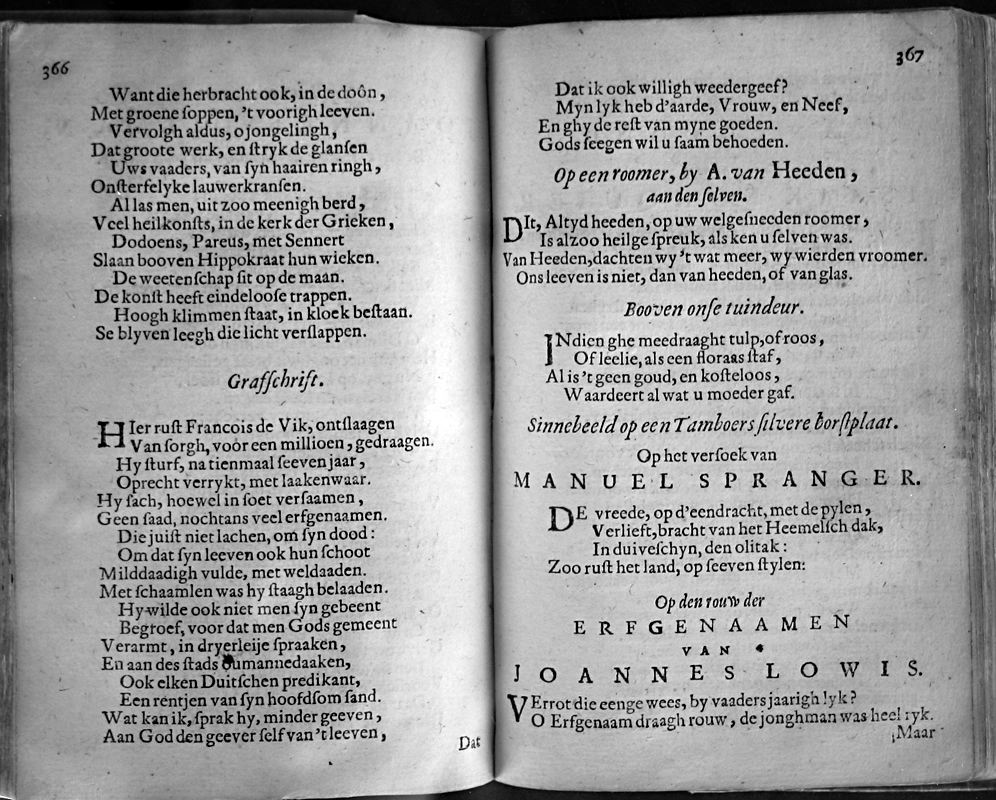 366
Want die herbracht ook, in de doôn,
Met groene ſoppen, 't voorigh leeven.
Vervolgh aldus, o jongelingh,
Dat groote werk, en ſtryk de glanſen
Uws vaaders, van ſyn haairen ringh,
Onſterfelyke lauwerkranſen.
Al las men, uit zoo meenigh berd,
Veel heilkonſts, in de kerk der Grieken,
Dodoens, Pareus, met Sennert
Slaan booven Hippokraat hun wieken.
De weetenſchap ſit op de maan.
De konſt heeft eindelooſe trappen.
Hoogh klimmen ſtaat, in kloek beſtaan.
Se blyven leegh die licht verſlappen.
Grafſchrift.
HIer ruſt Francois de Vik, ontſlaagen
Van ſorgh, voor een millioen, gedraagen.
Hy ſturf, na tienmaal ſeeven jaar,
Oprecht verrykt, met laakenwaar.
Hy ſach, hoewel in ſoet verſaamen,
Geen ſaad, nochtans veel erfgenaamen.
Die juiſt niet lachen, om ſyn dood:
Om dat ſyn leeven ook hun ſchoot
Milddaadigh vulde, met weldaaden.
Met ſchaamlen was hy ſtaagh belaaden.
Hy wilde ook niet men ſyn gebeent
Begroef, voor dat men Gods gemeent
Verarmt, in dryerleije ſpraaken,
En aan des ſtads oumannedaaken,
Ook elken Duitſchen predikant,
Een rentjen van ſyn hoofdſom ſand.
Wat kan ik, ſprak hy, minder geeven,
Aan God den geever ſelf van 't leeven,
Dat
367
Dat ik ook willigh weedergeef?
Myn lyk heb d'aarde, Vrouw, en Neef,
En ghy de reſt van myne goeden.
Gods ſeegen wil u ſaam behoeden.
Op een roomer, by A. van Heeden,
aan den ſelven.
DIt, Altyd heeden, op uw welgeſneeden roomer,
Is alzoo heilge ſpreuk, als ken u ſelven was.
Van Heeden, dachten wy 't wat meer, wy wierden vroomer.
Ons leeven is niet, dan van heeden, of van glas.
Booven onſe tuindeur.
INdien ghe meedraaght tulp, of roos,
Of leelie, als een floraas ſtaf,
Al is 't geen goud, en koſteloos,
Waardeert al wat u moeder gaf.
Sinnebeeld op een Tamboers ſilvere borſtplaat.
Op het verſoek van
MANUEL SPRANGER.
DE vreede, op d'eendracht, met de pylen,
Verlieft, bracht van het Heemelſch dak,
In duiveſchyn, den olitak:
Zoo ruſt het land, op ſeeven ſtylen:
Op den rouw der
ERFGENAAMEN
VAN
JOANNES LOWIS.
VErrot die eenge wees, by vaaders jaarigh lyk?
O Erfgenaam draagh rouw, de jonghman was heel ryk.
Maar